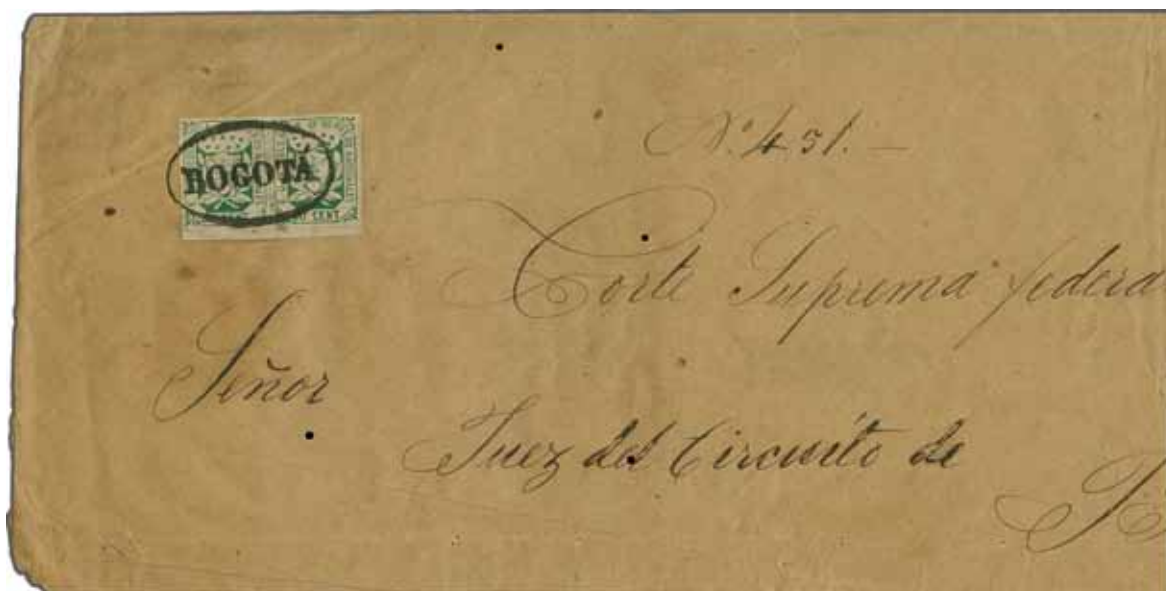 BOGOTÁ
CENT
No. 451. —
Corte Suprema federa
Señor
Juez del Circuito de